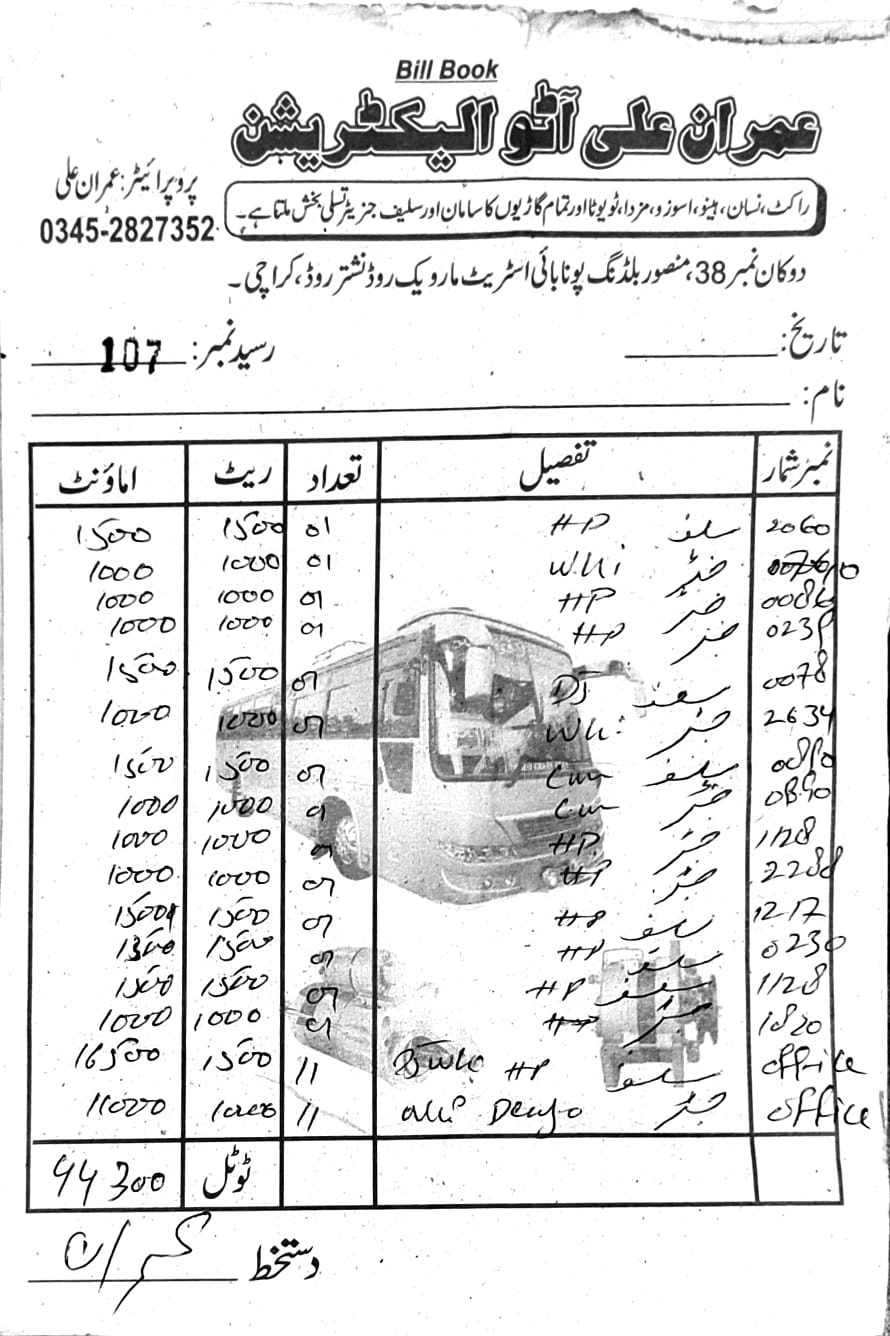 Bill Book
عمران علی آٹو الیکٹریشن
پروپرائیٹر: عمران علی
0345-2827352
راکٹ، نسان، ہینو، اسوزو، مزدا، ٹویوٹا اور تمام گاڑیوں کا سامان اور سلیف جنریٹر تسلی بخش ملتا ہے۔
دوکان نمبر 38، منصور بلڈنگ پونا بائی اسٹریٹ مارویک روڈ نشتر روڈ، کراچی۔
تاریخ: رسید نمبر: 107
نام:
نمبر شمار تفصیل تعداد ریٹ اماؤنٹ
2060 سلف HP 01 1500 1500
Whi 01 1000 1000
HP 01 1000 1000
HP 01 1000 1000
0078 سلف DJ 01 1500 1500
2634 Whi 01 1000 1000
سلف Cum 01 1500 1500
0890 Cum 01 1000 1000
1128 HP 01 1000 1000
2288 HP 01 1000 1000
1217 سلف HP 01 1500 1500
0230 سلف HP 01 1500 1500
1128 سلف HP 01 1500 1500
1820 HP 01 1000 1000
office سلف HP 11 1500 16500
office Denso 11 1000 11000
ٹوٹل 44300
دستخط